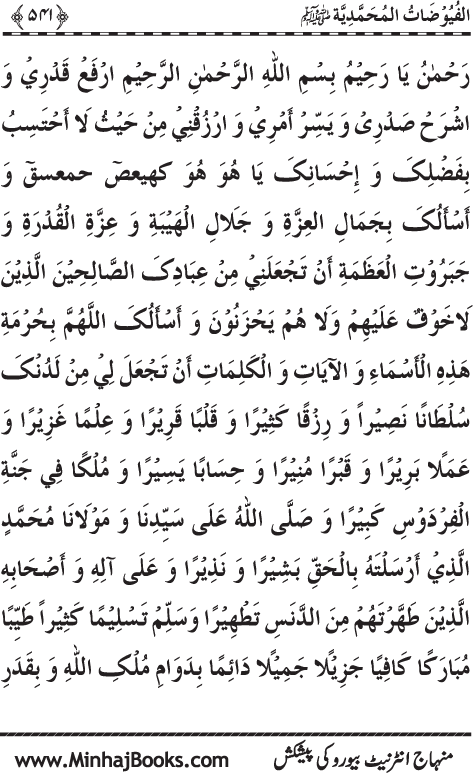 الفُيُوْضَاتُ المُحَمَّدِيَّة ﷺ ﴿۵۴۱﴾
رَحْمٰنُ يَا رَحِيْمُ بِسْمِ اللهِ الرَّحْمٰنِ الرَّحِيْمِ ارْفَعْ قَدْرِيْ وَ
اشْرَحْ صَدْرِىْ وَ يَسِّرْ أَمْرِيْ وَ ارْزُقْنِيْ مِنْ حَيْثُ لَا أَحْتَسِبُ
بِفَضْلِکَ وَ إِحْسَانِکَ يَا هُوَ هُوَ کهيعص حمعسق وَ
أَسْأَلُکَ بِجَمَالِ العِزَّةِ وَ جَلَالِ الْهَيْبَةِ وَ عِزَّةِ الْقُدْرَةِ وَ
جَبَرُوْتِ الْعَظَمَةِ أَنْ تَجْعَلَنِيْ مِنْ عِبَادِکَ الصَّالِحِيْنَ الَّذِيْنَ
لَاخَوْفٌ عَلَيْهِمْ وَلَا هُمْ يَحْزَنُوْنَ وَ أَسْأَلُکَ اللَّهُمَّ بِحُرْمَةِ
هَذِهِ الْأَسْمَاءِ وَ الآيَاتِ وَ الْکَلِمَاتِ أَنْ تَجْعَلَ لِيْ مِنْ لَدُنْکَ
سُلْطَانًا نَصِيْراً وَ رِزْقًا کَثِيْرًا وَ قَلْبًا قَرِيْرًا وَ عِلْمًا غَزِيْرًا وَ
عَمَلًا بَرِيْرًا وَ قَبْرًا مُنِيْرًا وَ حِسَابًا يَسِيْرًا وَ مُلْکًا فِي جَنَّةِ
الْفِرْدَوْسِ کَبِيْرًا وَ صَلَّى اللهُ عَلَى سَيِّدِنَا وَ مَوْلَانَا مُحَمَّدٍ
الَّذِيْ أَرْسَلْتَهُ بِالْحَقِّ بَشِيْرًا وَ نَذِيْرًا وَ عَلَى آلِهِ وَ أَصْحَابِهِ
الَّذِيْنَ طَهَّرْتَهُمْ مِنَ الدَّنَسِ تَطْهِيْرًا وَسَلِّمْ تَسْلِيْمًا کَثِيْراً طَيِّبًا
مُبَارَکًا کَافِيًا جَزِيْلًا جَمِيْلًا دَائِمًا بِدَوَامِ مُلْکِ اللهِ وَ بِقَدَرِ
منہاج انٹرنیٹ بیورو کی پیشکش www.MinhajBooks.com